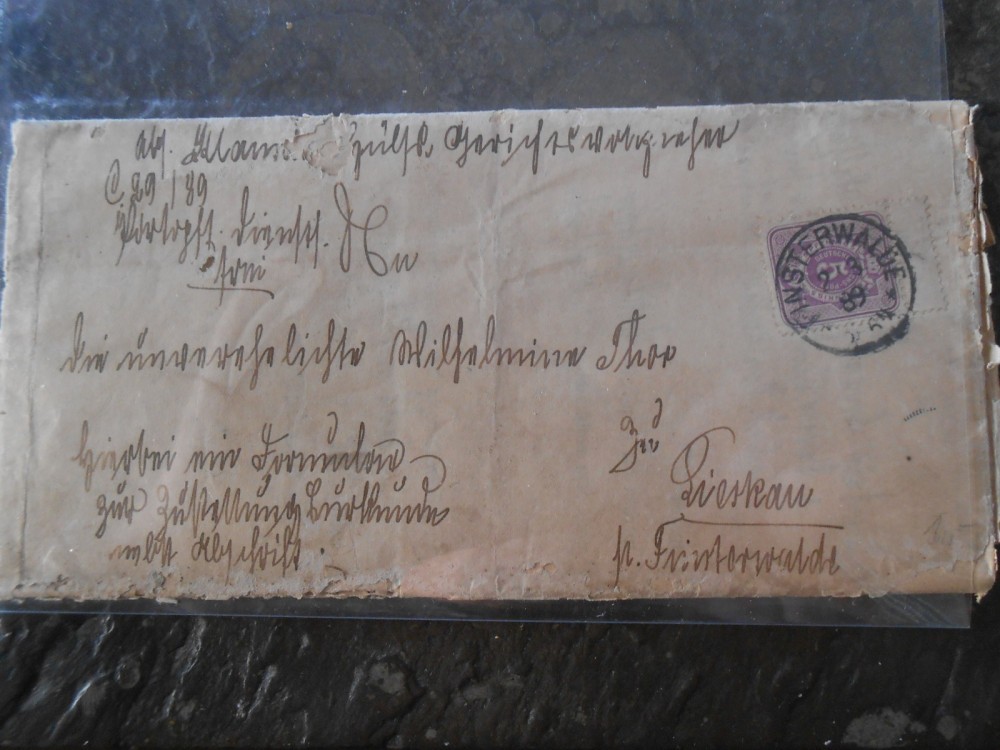 Abs. Hülfs. Gerichtsvollzieher
C. 29/89
Portopfl. Diensts.
An
die unverehelichte Wilhelmine Thor
Hierbei ein Formular
zur Zustellungsurkunde
nebst Abschrift.
zu
Lieskau
p. Finsterwalde
FINSTERWALDE
89